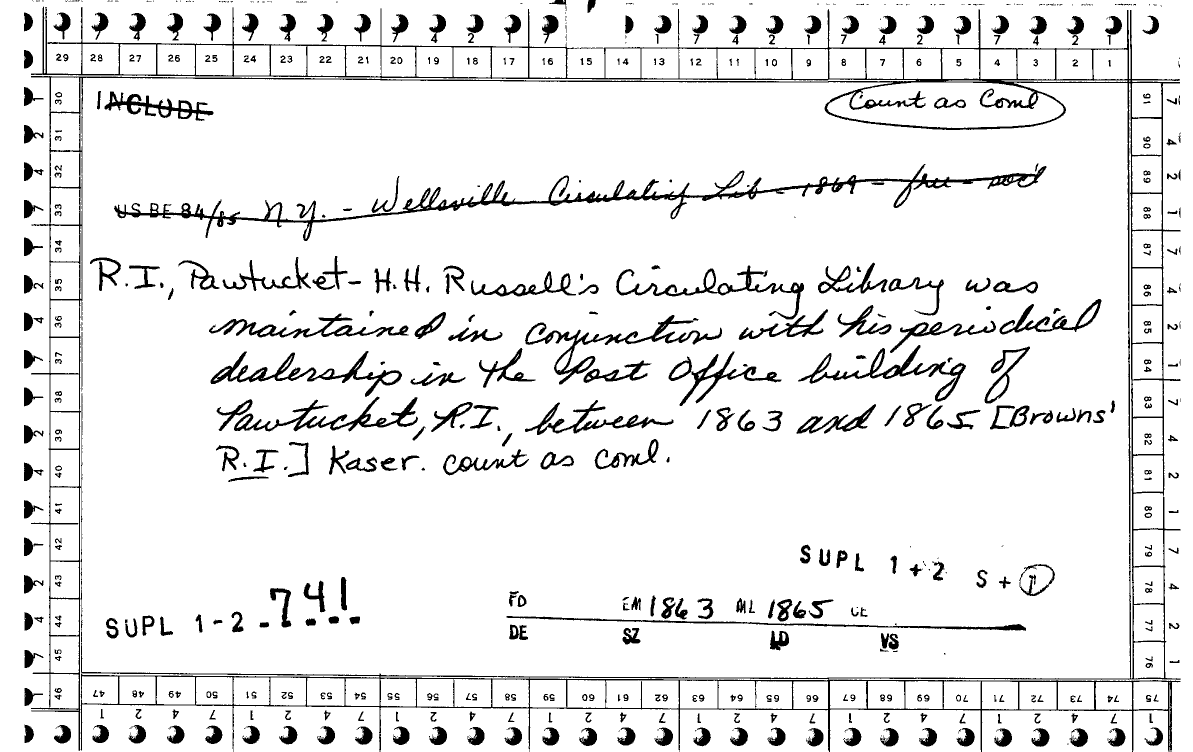 7 4 2 1 7 4 2 1 7 4 2 1 7 1 7 4 2 1 7 4 2 1 7 4 2 1
29 28 27 26 25 24 23 22 21 20 19 18 17 16 15 14 13 12 11 10 9 8 7 6 5 4 3 2 1
INCLUDE
Count as Coml
US BE 84/85 N.Y. - Wellsville Circulating Lib - 1869 - free - soc'l
R.I., Pawtucket - H.H. Russell's Circulating Library was
maintained in conjunction with his periodical
dealership in the Post Office building of
Pawtucket, R.I., between 1863 and 1865 [Browns'
R.I.] Kaser. count as coml.
SUPL 1+2 S+
SUPL 1-2 741
FD EM 1863 ML 1865 CE
DE SZ LD VS
30 31 32 33 34 35 36 37 38 39 40 41 42 43 44 45 46
91 90 89 88 87 86 85 84 83 82 81 80 79 78 77 76 75
47 48 49 50 51 52 53 54 55 56 57 58 59 60 61 62 63 64 65 66 67 68 69 70 71 72 73 74
1 2 4 7 1 2 4 7 1 2 4 7 1 2 4 7 1 2 4 7 1 2 4 7 1 2 4 7